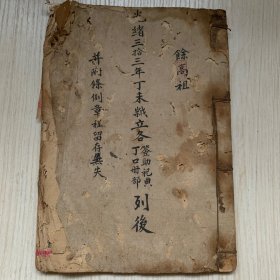 餘高祖
光緒三拾三年丁未歲立各簽助祀典丁口冊部列後
并附條例章程留存無失